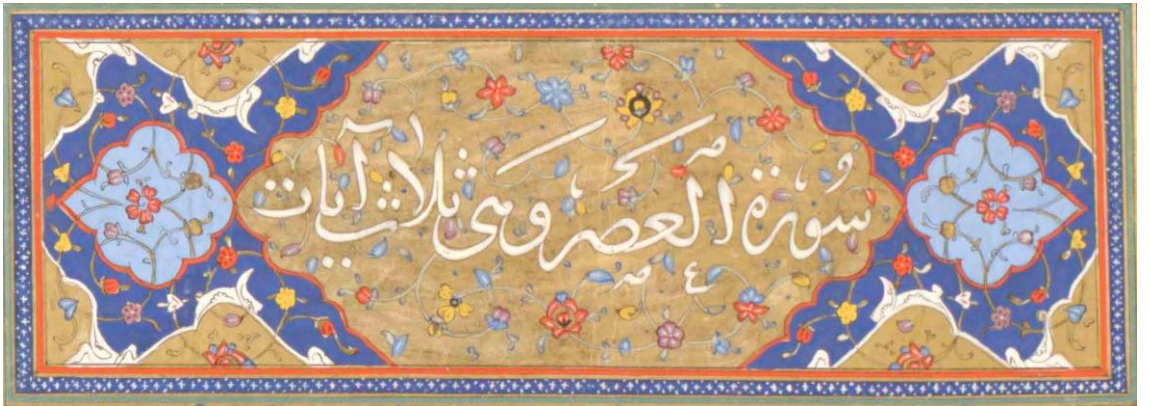 سورة العصر وهى ثلاث آيات